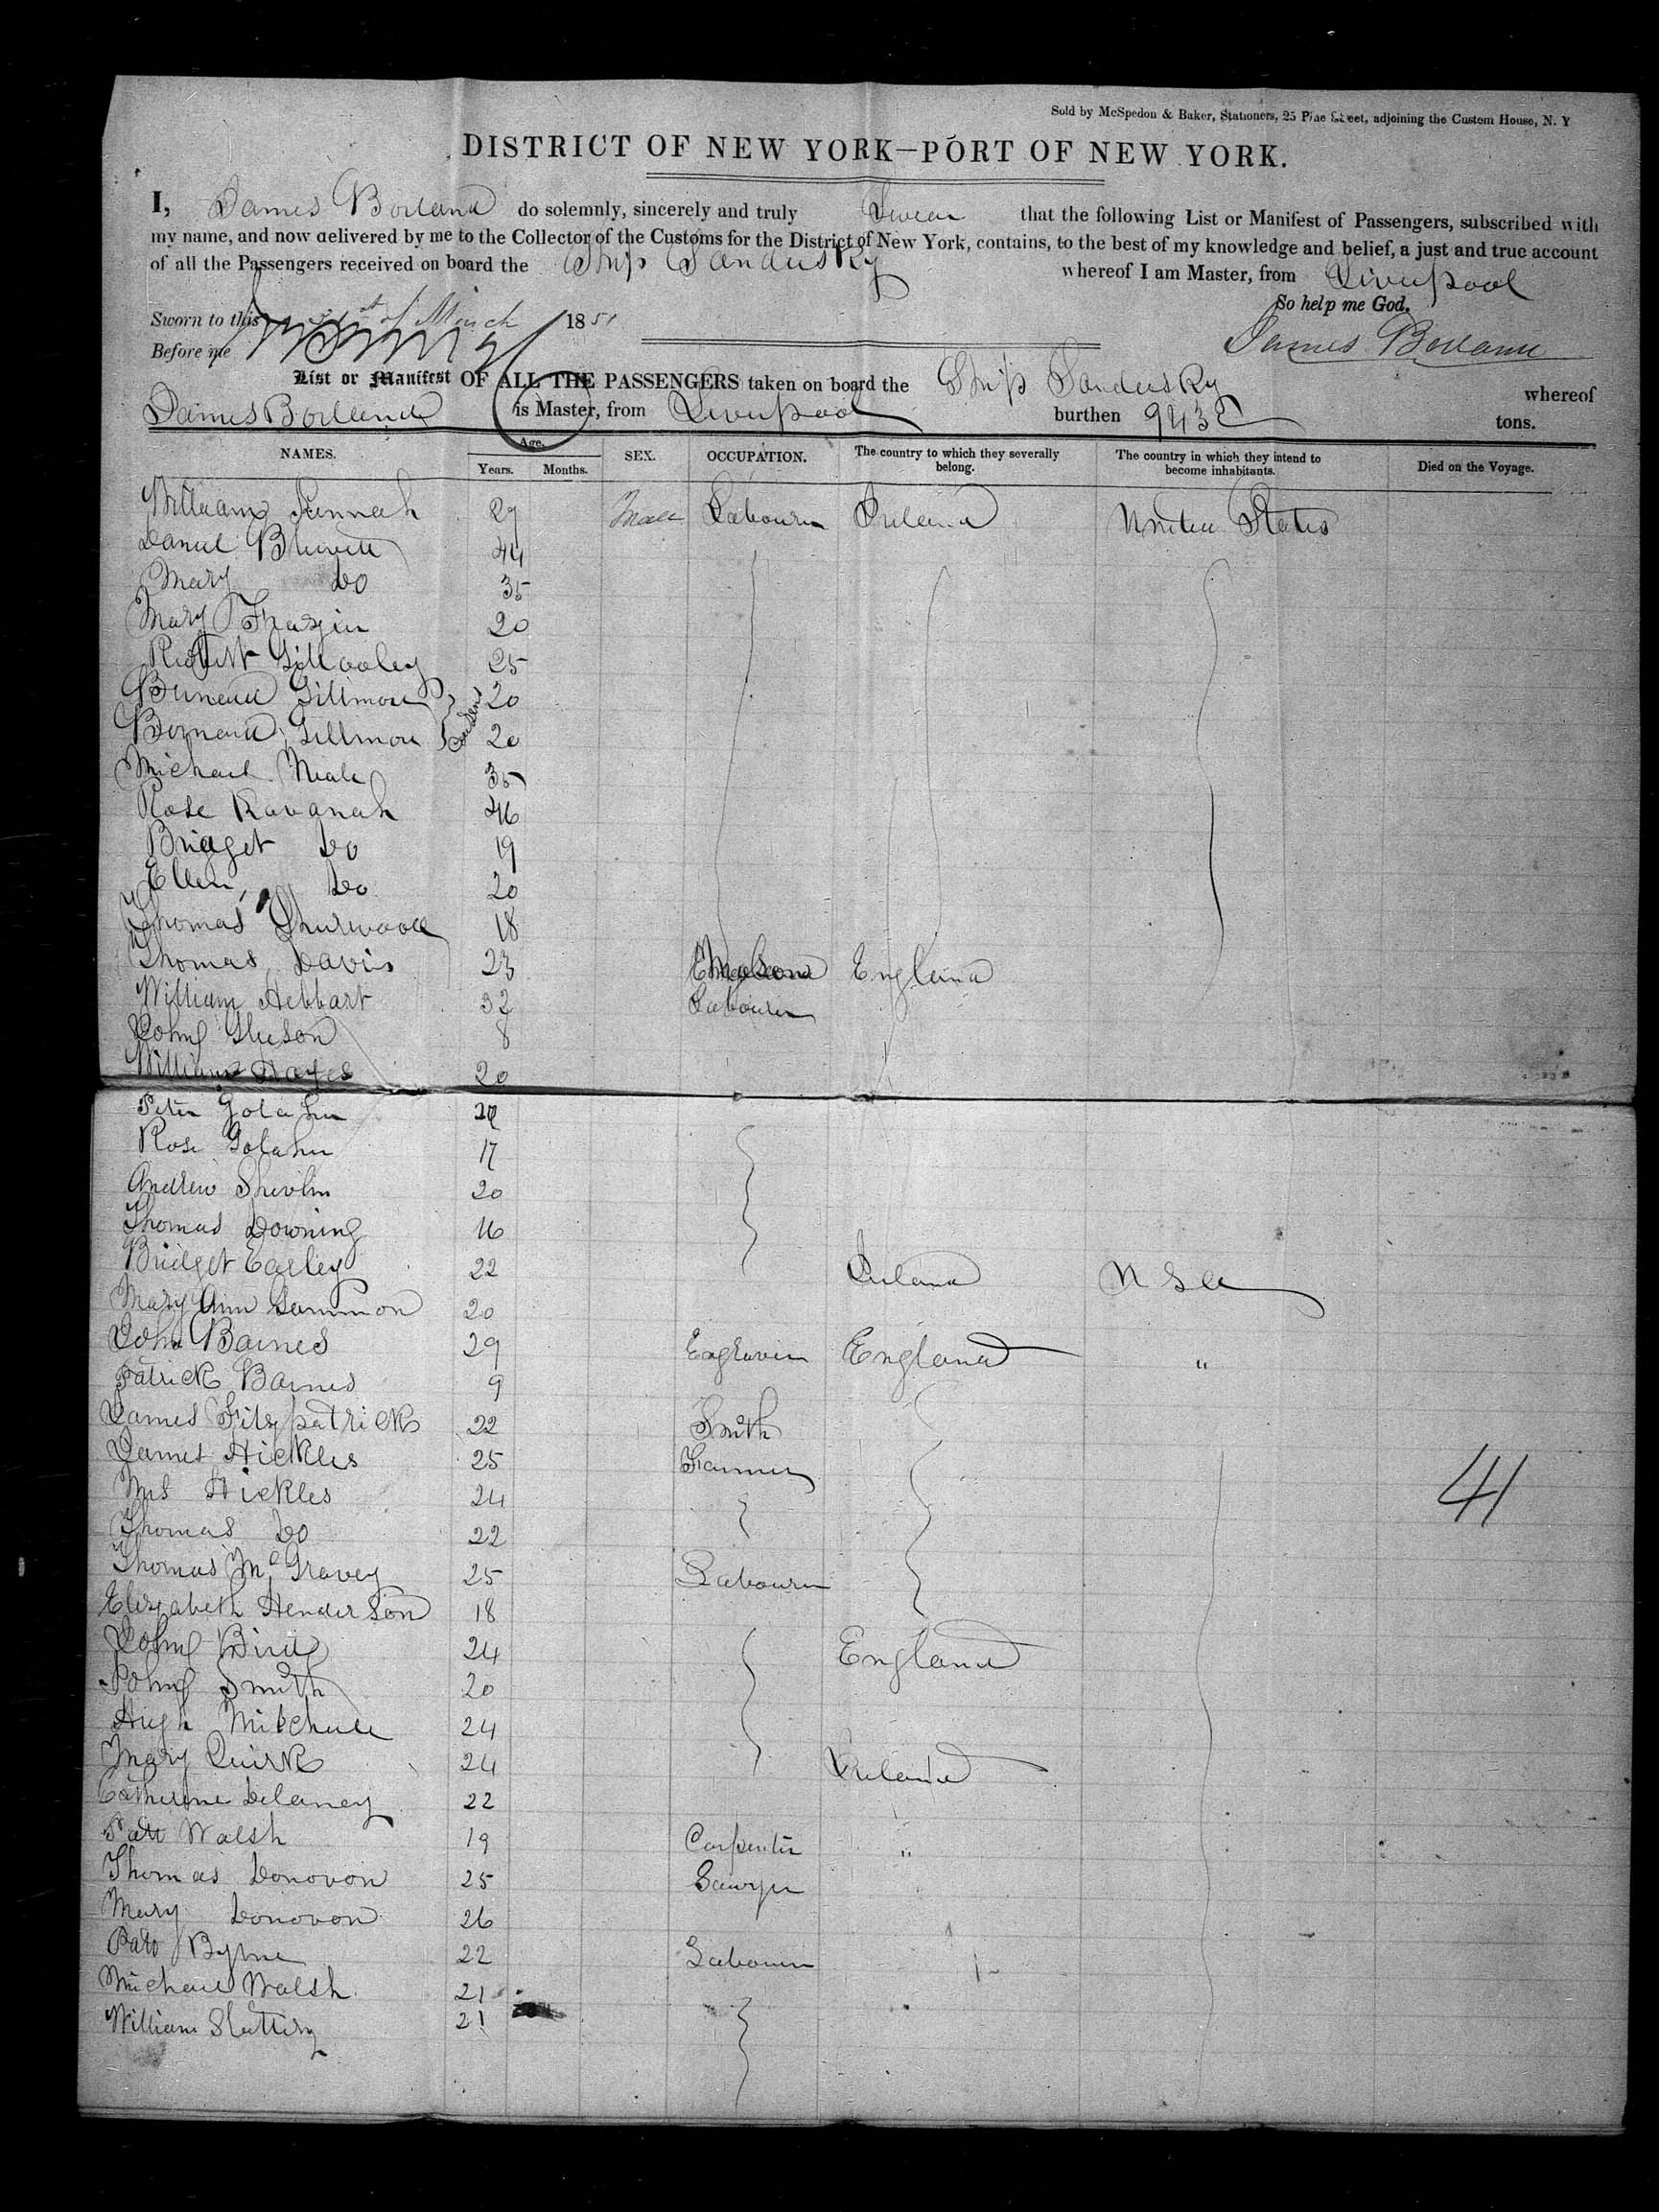 Sold by McSpedon & Baker, Stationers, 25 Pine Street, adjoining the Custom House, N. Y
DISTRICT OF NEW YORK—PORT OF NEW YORK.
I, James Borland do solemnly, sincerely and truly Swear that the following List or Manifest of Passengers, subscribed with
my name, and now delivered by me to the Collector of the Customs for the District of New York, contains, to the best of my knowledge and belief, a just and true account
of all the Passengers received on board the Ship Sandusky whereof I am Master, from Liverpool
So help me God.
Sworn to this of March 1851
James Borland
Before me
List or Manifest OF ALL THE PASSENGERS taken on board the Ship Sandusky whereof
James Borland is Master, from Liverpool burthen 943 tons.
NAMES. Age. Years. Months. SEX. OCCUPATION. The country to which they severally belong. The country in which they intend to become inhabitants. Died on the Voyage.
William 29 Male Labourer Ireland United States
Daniel 44
Mary Do 35
Mary 20
Robert Gillooley 25
Bernard Gillmore 20
Bernard Gillmore 20
Michael Neale 35
Rose Kavanah 46
Bridget Do 19
Ellen Do 20
Thomas Shurwood 18
Thomas Davis 23 Mason England
William Hebbart 32 Labourer
John Gleeson 8
William Hayes 20
Peter Golaher
Rose Golaher 17
Andrew 20
Thomas Downing 16
Bridget Earley 22 Ireland U S a
Mary Ann Gammon 20
John Barnes 29 Engraver England "
Patrick Barnes 9
James Fitzpatrick 22 Smith
James Hickles 25 Farmer
Mrs Hickles 24 41
Thomas Do 22
Thomas McGravey 25 Labourer
Elizabeth Henderson 18
John Bird 24 England
John Smith 20
Hugh Mitchell 24
Mary Quirk 24 Ireland
Catherine Delaney 22
Patt Walsh 19 Carpenter "
Thomas Donovon 25 Sawyer
Mary Donovon 26
Patt Byrne 22 Labourer
Michael Walsh 21
William Slattery 21